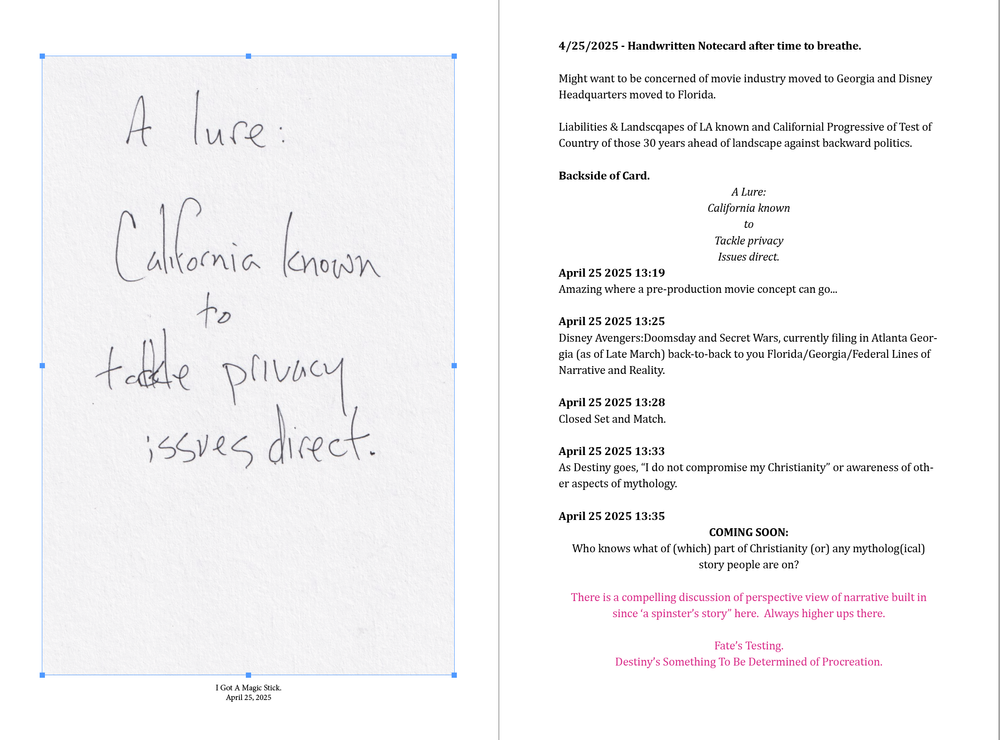 A lure:
California known
to
tackle privacy
issues direct.
I Got A Magic Stick.
April 25, 2025
4/25/2025 - Handwritten Notecard after time to breathe.
Might want to be concerned of movie industry moved to Georgia and Disney
Headquarters moved to Florida.
Liabilities & Landscqapes of LA known and Californial Progressive of Test of
Country of those 30 years ahead of landscape against backward politics.
Backside of Card.
A Lure:
California known
to
Tackle privacy
Issues direct.
April 25 2025 13:19
Amazing where a pre-production movie concept can go...
April 25 2025 13:25
Disney Avengers:Doomsday and Secret Wars, currently filing in Atlanta Geor-
gia (as of Late March) back-to-back to you Florida/Georgia/Federal Lines of
Narrative and Reality.
April 25 2025 13:28
Closed Set and Match.
April 25 2025 13:33
As Destiny goes, “I do not compromise my Christianity” or awareness of oth-
er aspects of mythology.
April 25 2025 13:35
COMING SOON:
Who knows what of (which) part of Christianity (or) any mytholog(ical)
story people are on?
There is a compelling discussion of perspective view of narrative built in
since ‘a spinster’s story” here.  Always higher ups there.
Fate’s Testing.
Destiny’s Something To Be Determined of Procreation.